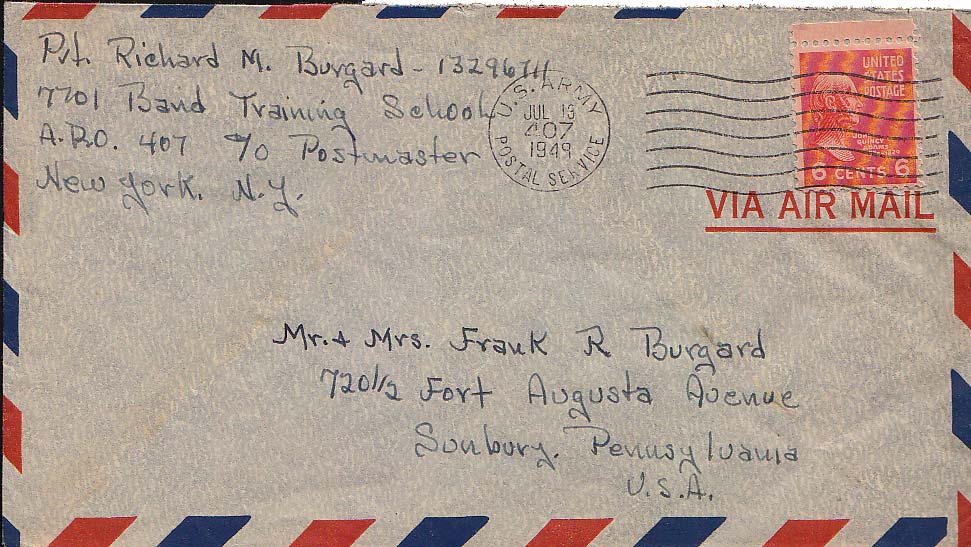 Pvt. Richard M. Burgard - 13296711
7701 Band Training School
A.P.O. 407 c/o Postmaster
New York, N.Y.
U.S. ARMY
JUL 13
407
1949
POSTAL SERVICE
UNITED
STATES
POSTAGE
JOHN
QUINCY
ADAMS
6 CENTS 6
VIA AIR MAIL
Mr. + Mrs. Frank R Burgard
720 1/2 Fort Augusta Avenue
Sunbury, Pennsylvania
U.S.A.